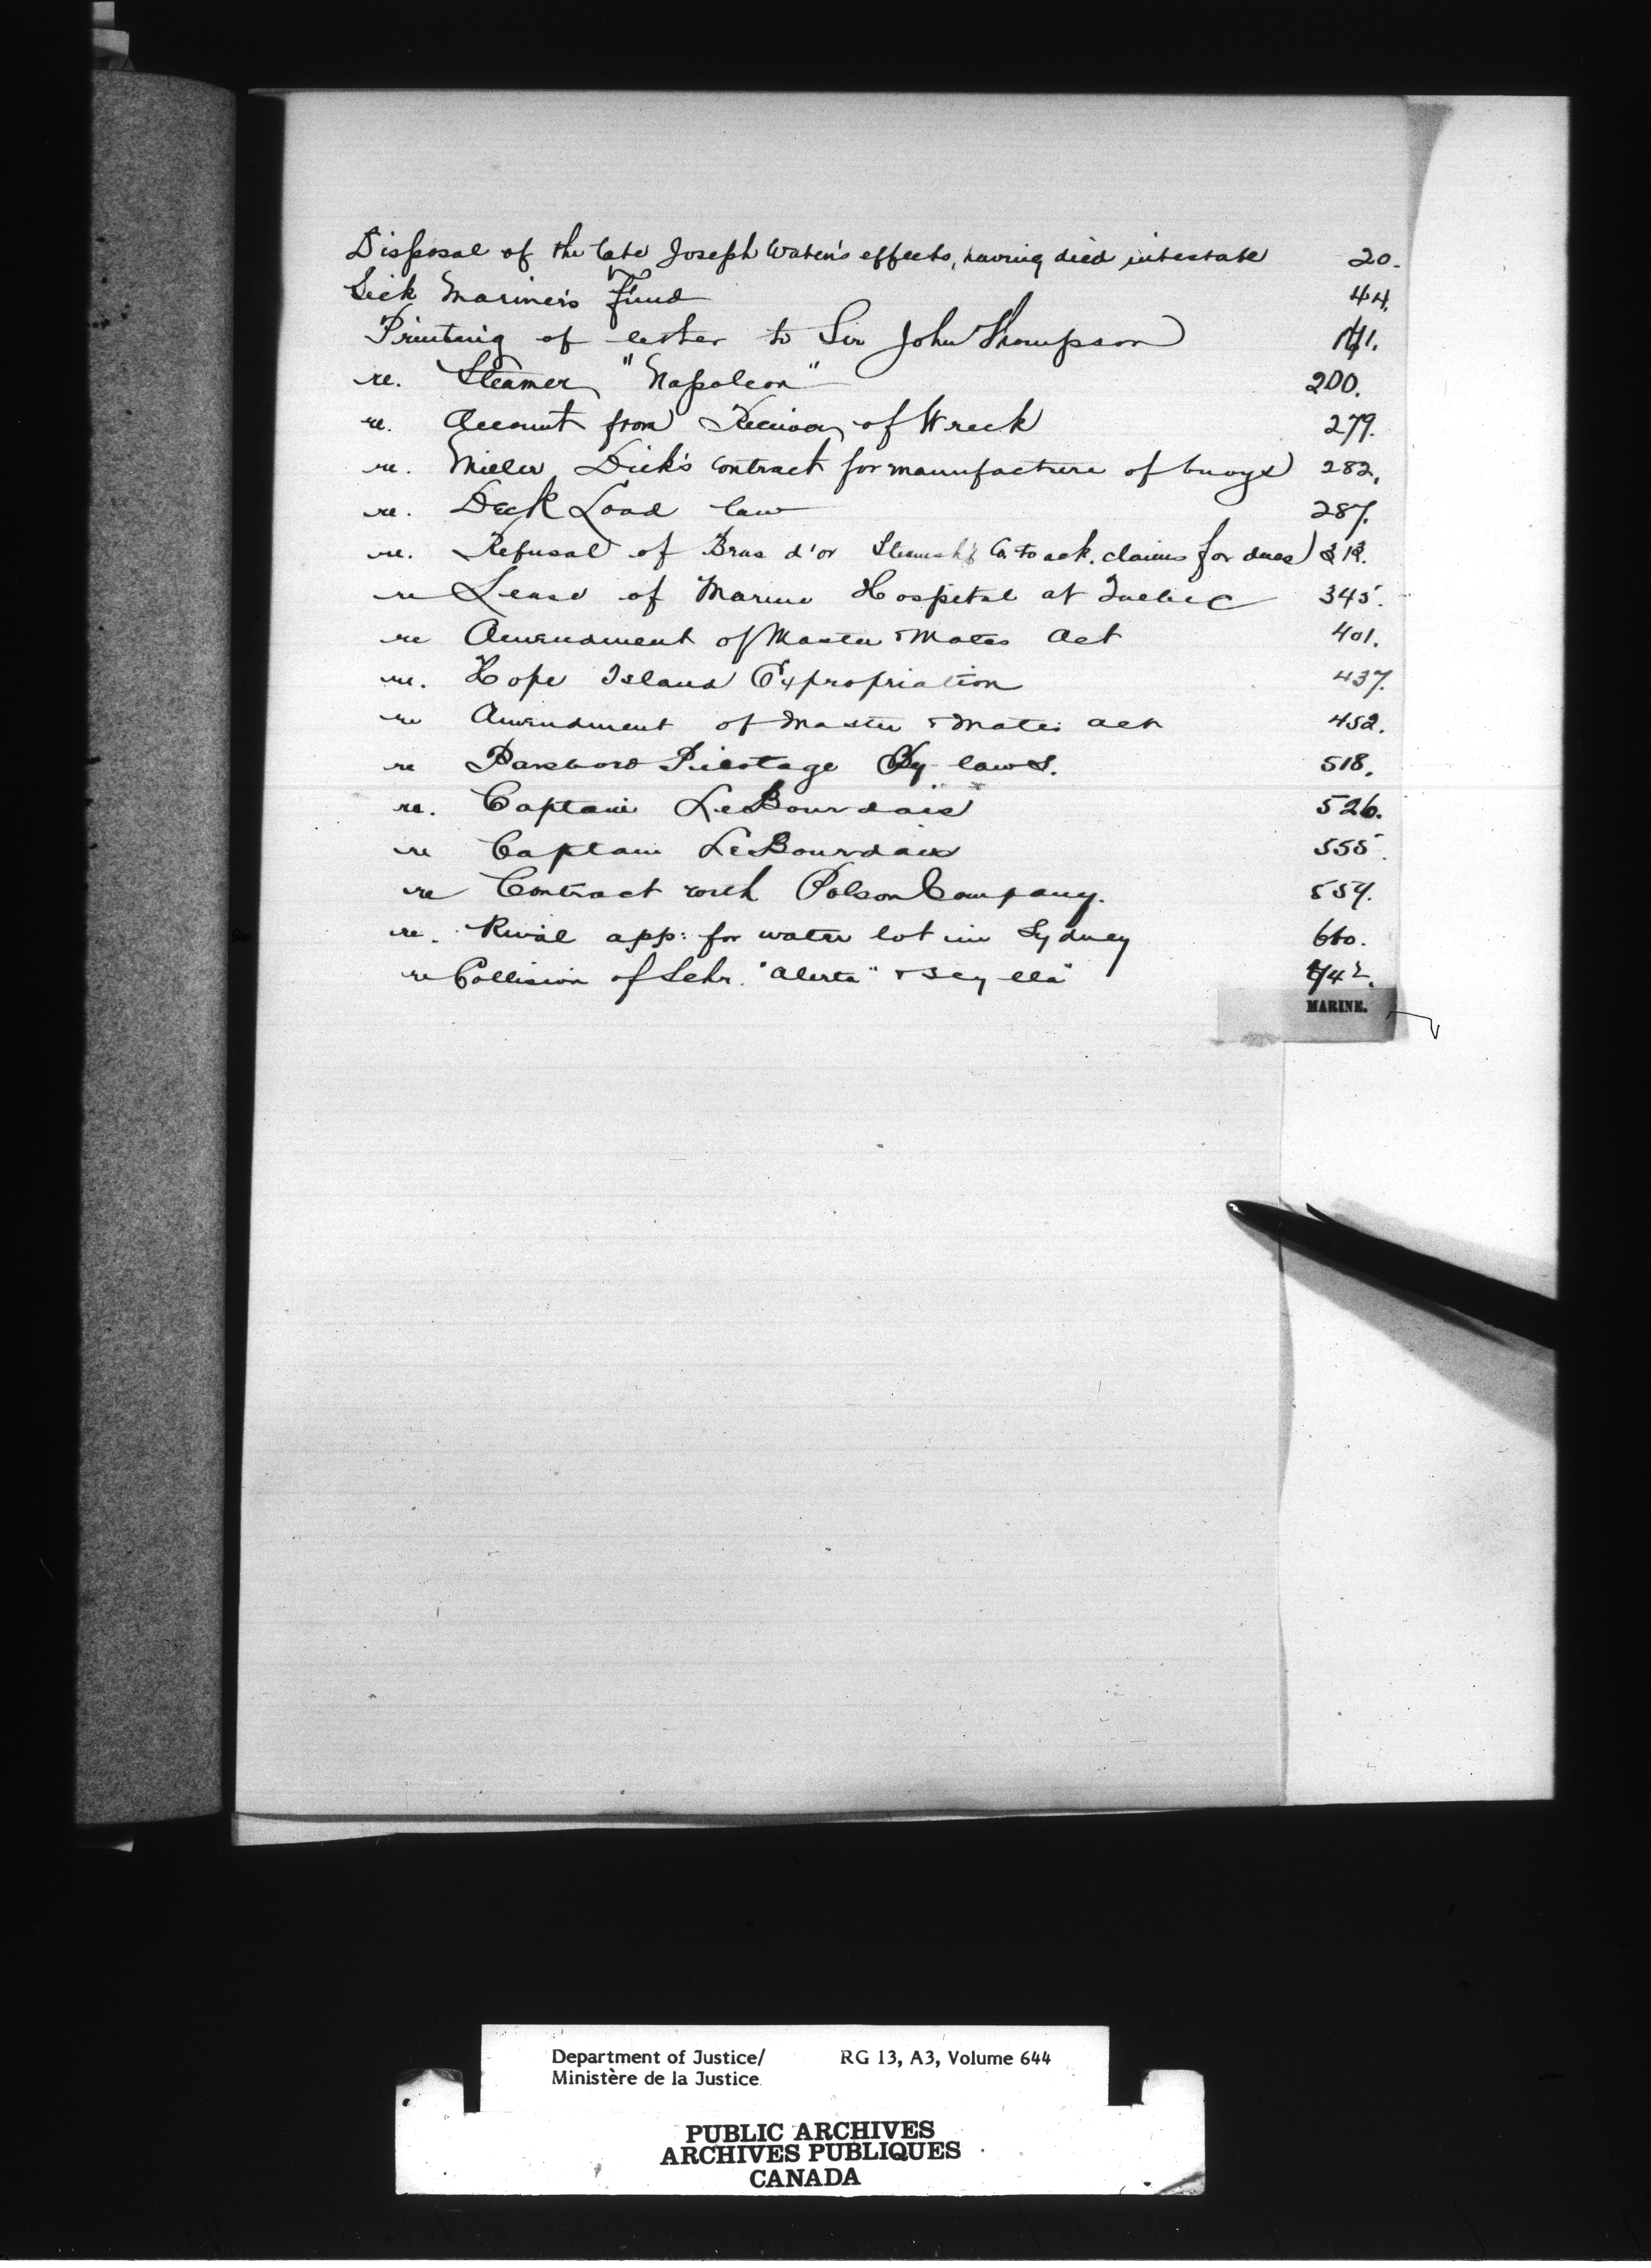 Disposal of the late Joseph Water's effects, having died intestate 20.
Sick Mariner's Fund 44.
Printing of letter to Sir John Thompson
re. Steamer "Napoleon" 200.
re. Account from Receiver of Wreck 279.
re. Miller Dick's contract for manufacture of buoys 282.
re. Deck Load law 287.
re. Refusal of Bras d'or Steamsh'p Co. to ack. claims for dues 313.
re Lease of Marine Hospital at Quebec 345.
re Amendment of Master & Mates Act 401.
re. Hope Island Expropriation 437.
re Amendment of Master & Mates act 452.
re Parsboro Pilotage By laws. 518.
re. Captain LeBourdais 526.
re Captain LeBourdais 555.
re Contract with Polson Company. 559.
re. Rival app: for water lot in Sydney 660.
re Collision of Schr. "Alerta" & "Scylla"
MARINE.
Department of Justice/ RG 13, A3, Volume 644
Ministère de la Justice
PUBLIC ARCHIVES
ARCHIVES PUBLIQUES
CANADA